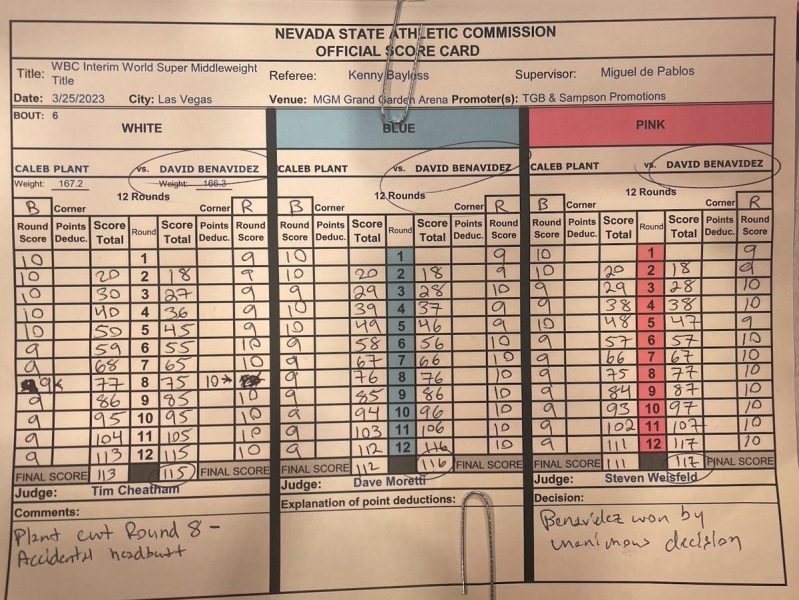 NEVADA STATE ATHLETIC COMMISSION
OFFICIAL SCORE CARD
Title: WBC Interim World Super Middleweight Title Referee: Kenny Bayless Supervisor: Miguel de Pablos
Date: 3/25/2023 City: Las Vegas Venue: MGM Grand Garden Arena Promoter(s): TGB & Sampson Promotions
BOUT: 6
WHITE BLUE PINK
CALEB PLANT vs. DAVID BENAVIDEZ CALEB PLANT vs. DAVID BENAVIDEZ CALEB PLANT vs. DAVID BENAVIDEZ
Weight: 167.2 Weight: 166.3
12 Rounds 12 Rounds 12 Rounds
B Corner Corner R B Corner Corner R B Corner Corner R
Round Score Points Deduc. Score Total Round Score Total Points Deduc. Round Score Round Score Points Deduc. Score Total Round Score Total Points Deduc. Round Score Round Score Points Deduc. Score Total Round Score Total Points Deduc. Round Score
10 1 9 10 1 9 10 1 9
10 20 2 18 9 10 20 2 18 9 10 20 2 18 9
10 30 3 27 9 9 29 3 28 10 9 29 3 28 10
10 40 4 36 9 10 39 4 37 9 9 38 4 38 10
10 50 5 45 9 10 49 5 46 9 10 48 5 47 9
9 59 6 55 10 9 58 6 56 10 9 57 6 57 10
9 68 7 65 10 9 67 7 66 10 9 66 7 67 10
9 77 8 75 10 9 76 8 76 10 9 75 8 77 10
9 86 9 85 10 9 85 9 86 10 9 84 9 87 10
9 95 10 95 10 9 94 10 96 10 9 93 10 97 10
9 104 11 105 10 9 103 11 106 10 9 102 11 107 10
9 113 12 115 10 9 112 12 116 10 9 111 12 117 10
FINAL SCORE 113 115 FINAL SCORE FINAL SCORE 112 116 FINAL SCORE FINAL SCORE 111 117 FINAL SCORE
Judge: Tim Cheatham Judge: Dave Moretti Judge: Steven Weisfeld
Comments: Explanation of point deductions: Decision:
Plant cut Round 8 -
Accidental headbutt
Benavidez won by
unanimous decision